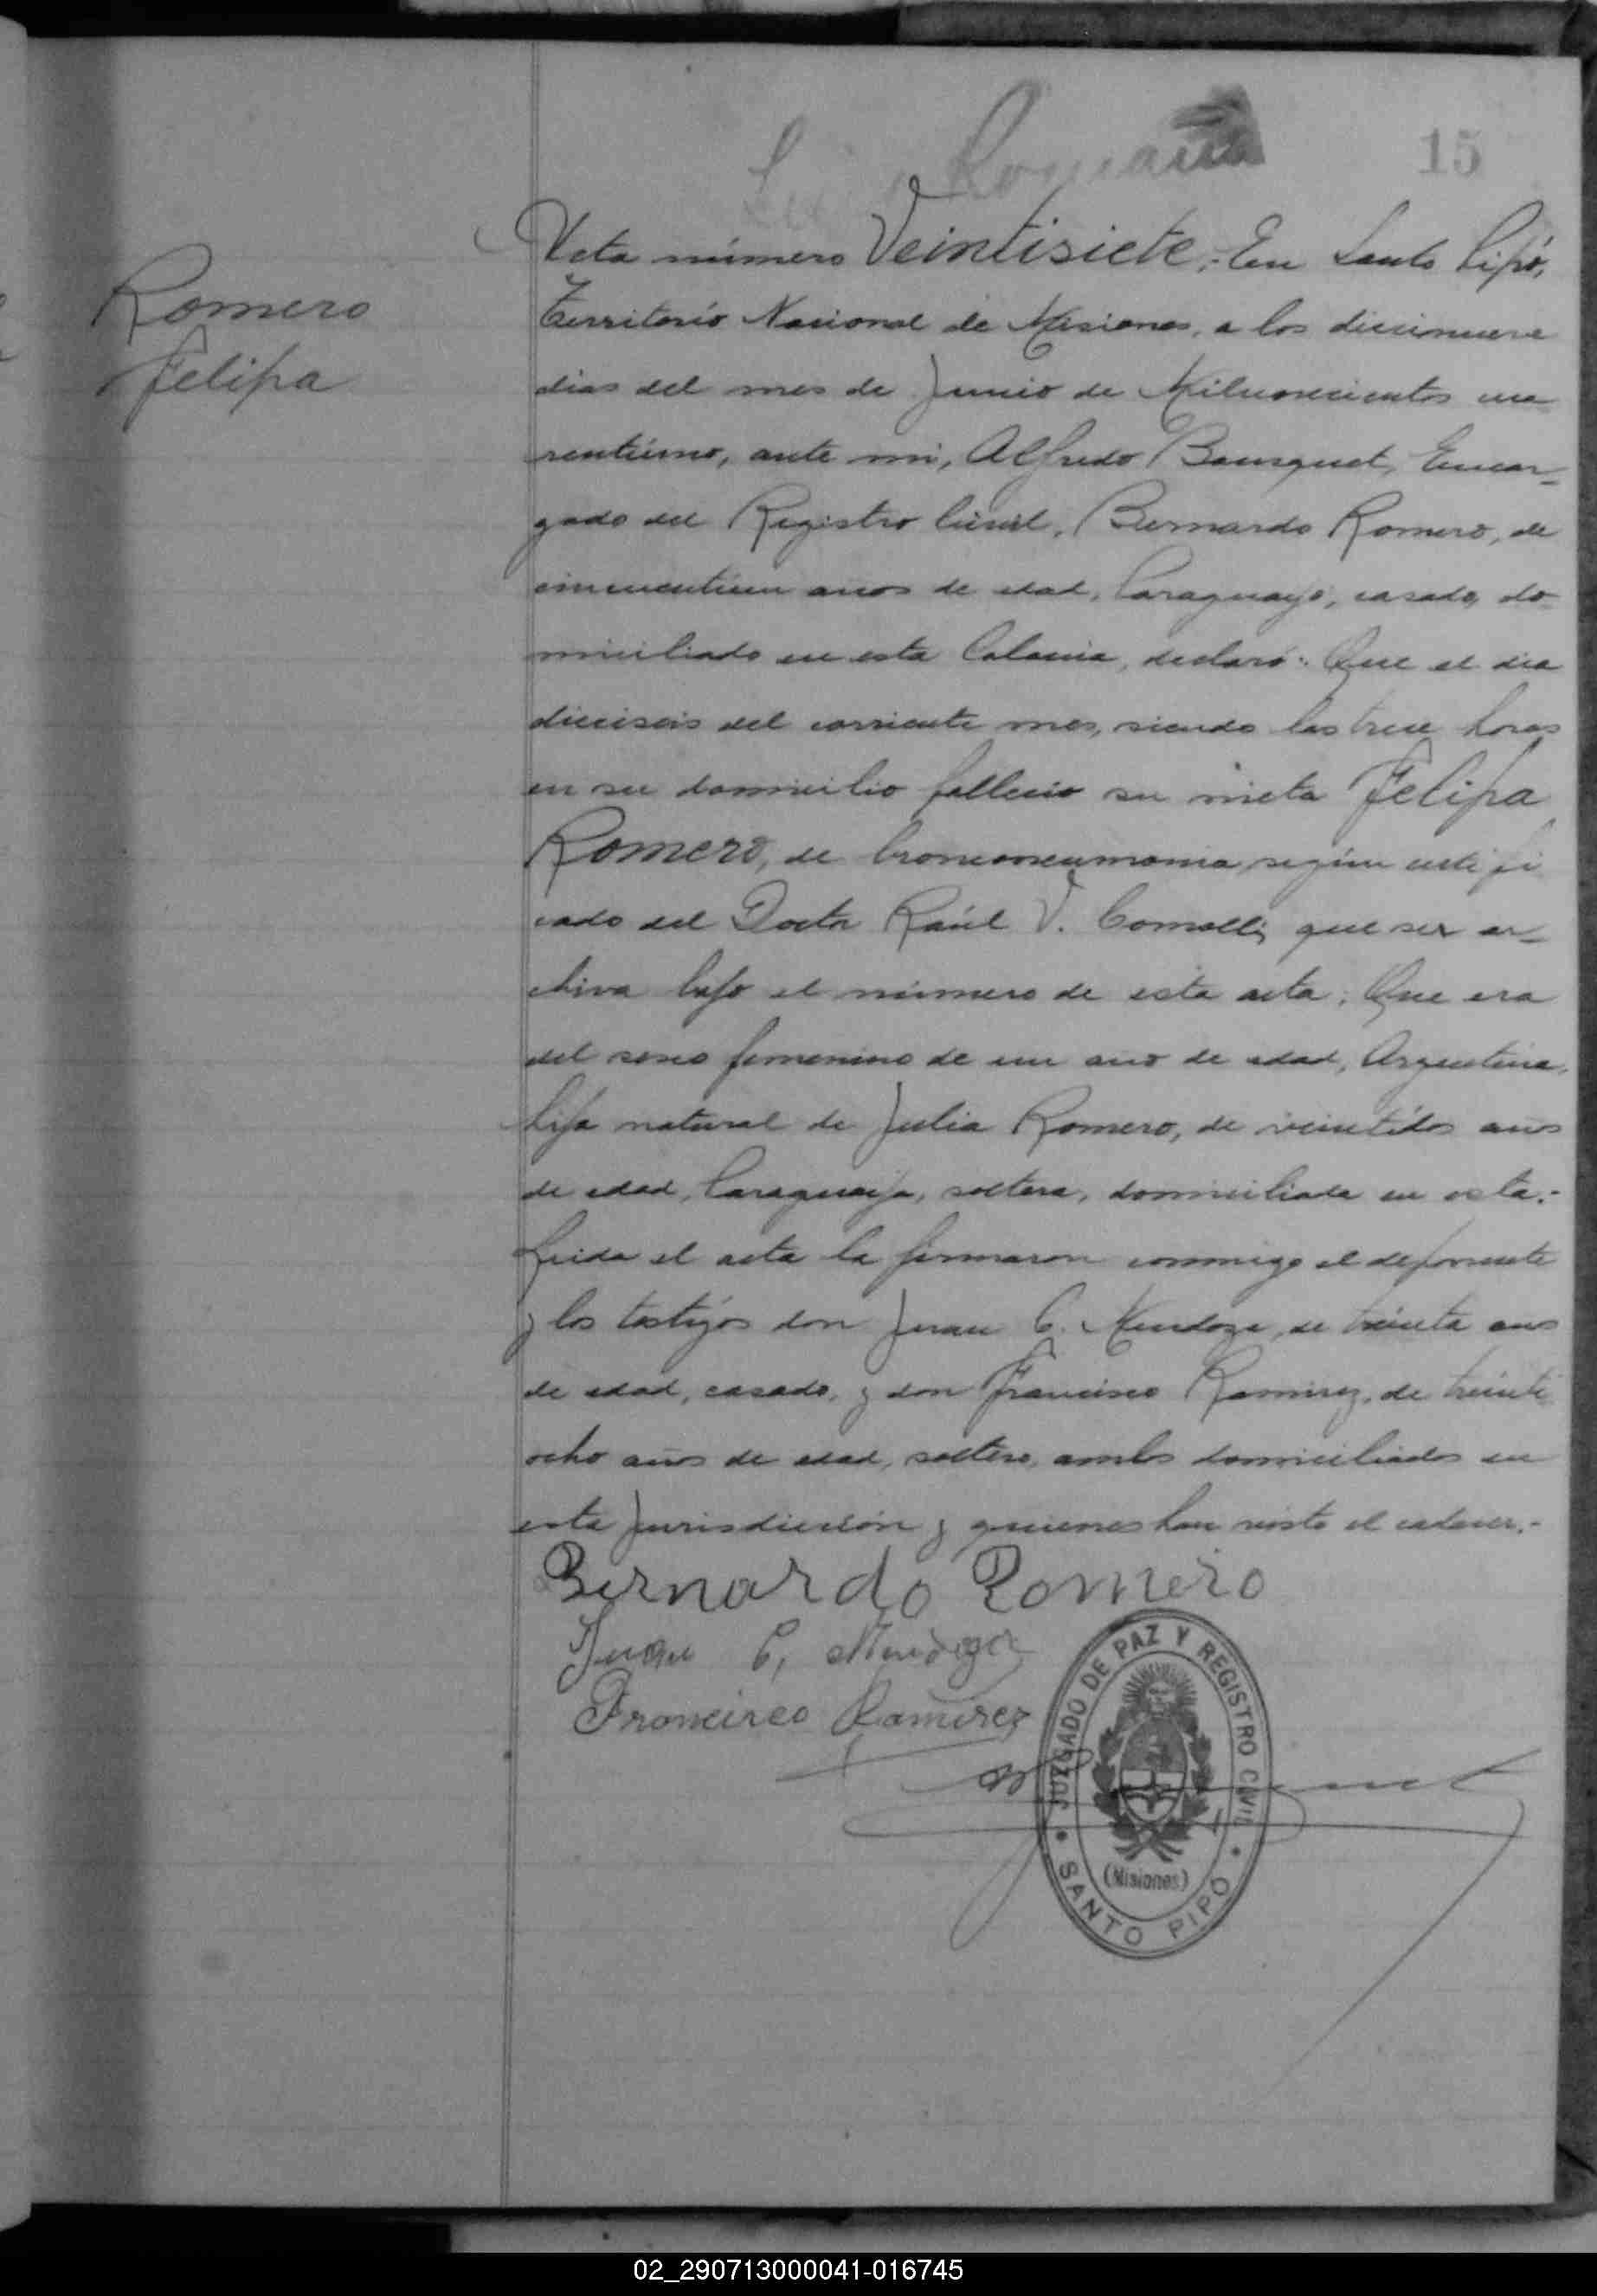 15
Romero
Felipa
Acta número Veintisiete.- En Santo Pipó,
Territorio Nacional de Misiones, a los diecinueve
dias del mes de Junio de Milnovecientos cua
rentiúno, ante mi, Alfredo Bousquet, Encar-
gado del Registro Civil, Bernardo Romero, de
cincuentiun años de edad, Paraguayo, casado, do-
miciliado en esta Colonia, declaró: Que el dia
dieciseis del corriente mes, siendo las trece horas
en su domicilio falleció su nieta Felipa
Romero, de bronconeumonia, según certifi
cado del Doctor Raúl V. Comolli, que se ar-
chiva bajo el número de esta acta; Que era
del sexo femenino de un año de edad, Argentina,
hija natural de Julia Romero, de veintidós años
de edad, Paraguaya, soltera, domiciliada en esta.-
Leida el acta la firmaron conmigo el deponente
y los testigos don Juan C. Mendoza, de treinta años
de edad, casado, y don Francisco Ramirez, de treinti
ocho años de edad, soltero, ambos domiciliados en
esta jurisdicción y quienes han visto el cadaver.-
Bernardo Romero
Juan C, Mendoza
Francisco Ramirez
JUZGADO DE PAZ Y REGISTRO CIVIL
(Misiones)
SANTO PIPÓ
02_290713000041-016745